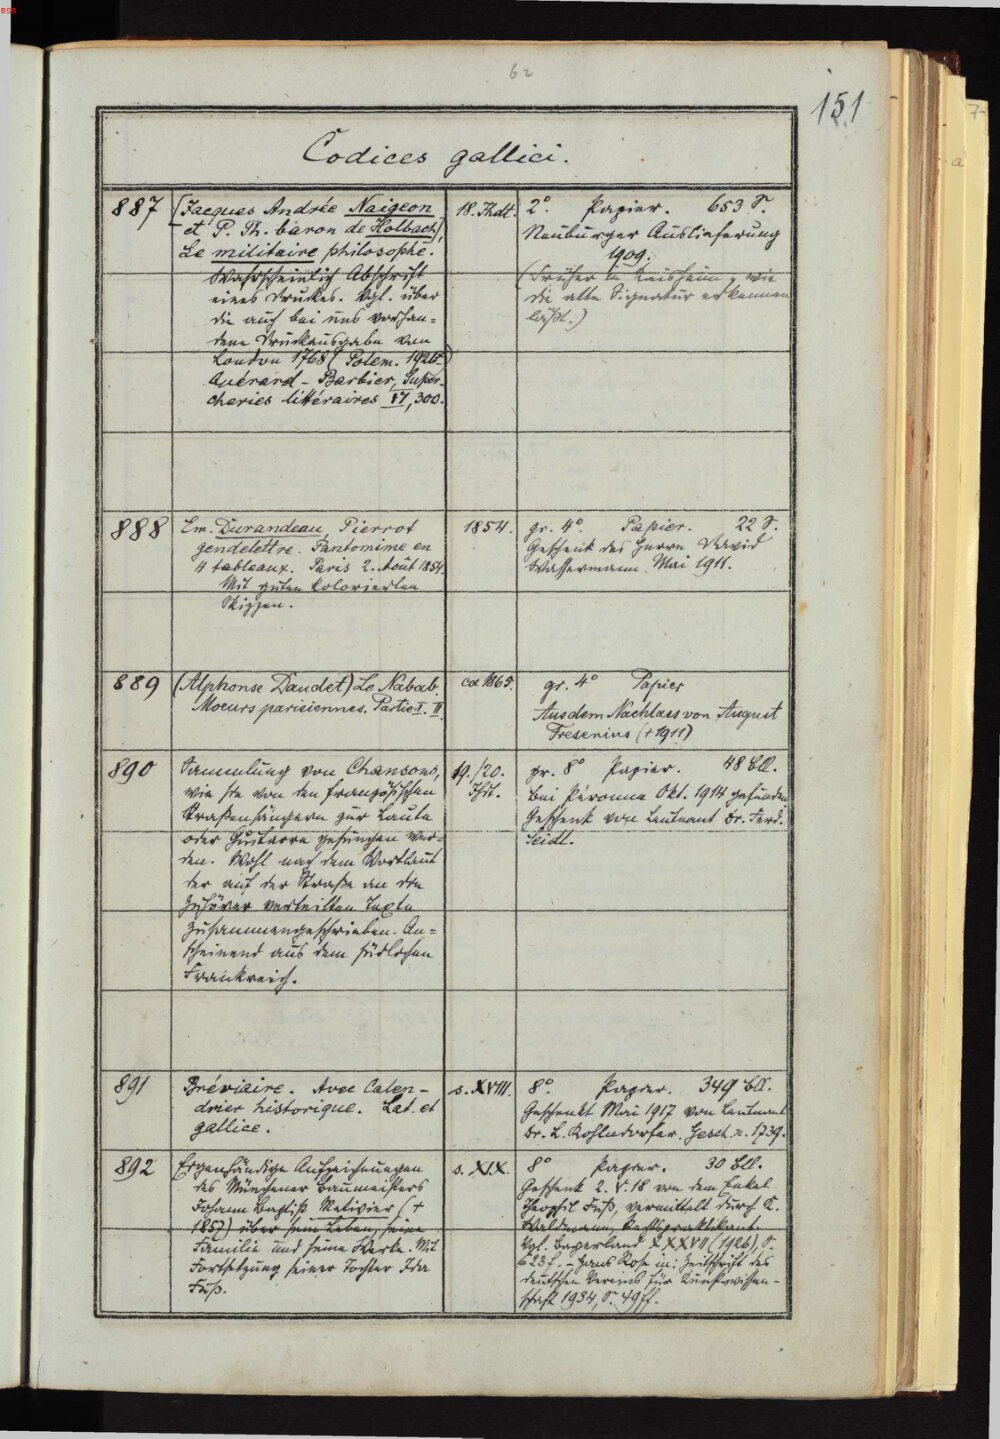 BSB
62
151
Codices gallici.
887
(Jacques André Naigeon
et P. Th. baron de Holbach),
Le militaire philosophe.
Wahrscheinlich Abschrift
eines Druckes. Vgl. über
die auch bei uns vorhan=
dene Druckausgabe von
London 1768 (Polem. 1926)
Quérard - Barbier, Super-
cheries littéraires VI, 300.
18. Jhdt.
2°. Papier. 653 S.
Neuburger Auslieferung
1909.
(Früher in Kaisheim, wie
die alte Signatur erkennen
läßt.)
888
Em. Durandeau, Pierrot
gendelettre. Pantomime en
4 tableaux. Paris 2. Août 1854.
Mit guten kolorierten
Skizzen.
1854.
gr. 4°. Papier. 22 S.
Geschenk des Herrn David
Wassermann Mai 1911.
889
(Alphonse Daudet) Le Nabab.
Moeurs parisiennes. Partie I. II
ca 1865.
gr. 4° Papier
Aus dem Nachlass von August
Fresenius († 1911)
890
Sammlung von Chansons,
wie sie von den französischen
Straßensängern zur Laute
oder Guitarre gesungen wer=
den. Wohl nach dem Wortlaut
der auf der Straße an die
Zuhörer verteilten Texte
zusammengeschrieben. An=
scheinend aus dem südlichen
Frankreich.
19./20.
Jhdt.
gr. 8° Papier. 48 Bll.
Bei Péronne Okt. 1914 gefunden
Geschenk von Leutnant Dr. Ferd.
Seidl.
891
Bréviaire. Avec Calen-
drier historique. Lat. et
gallice.
s. XVIII.
8°. Papier. 349 Bll.
Geschenkt Mai 1917 von Leutnant
Dr. L. Kohlndorfer. Gesch. n. 1739.
892
Eigenhändige Aufzeichnungen
des Münchener Baumeisters
Johann Baptist Metivier (†
1857) über sein Leben, seine
Familie und seine Werke. Mit
Fortsetzung seiner Tochter Ida
Fuß.
s. XIX.
8° Papier. 30 Bll.
Geschenk 2. V. 18 von dem Enkel
Theophil Fuß, vermittelt durch K.
Waldmann,
Vgl. Bayerland XXXVII (1926), S.
623 f. - Hans Rose in: Zeitschrift des
deutschen Vereins für Kunstwissen-
schaft 1934, S. 49 ff.